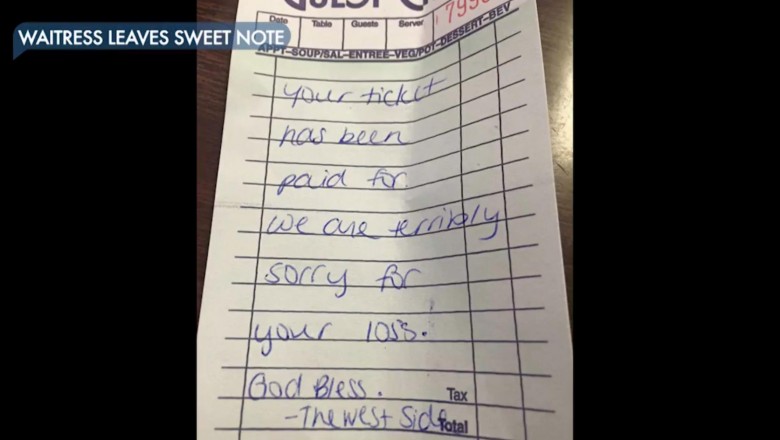 WAITRESS LEAVES SWEET NOTE
Date Table Guests Server
APPT-SOUP/SAL-ENTREE-VEG/POT-DESSERT-BEV
your ticket
has been
paid for.
we are terribly
sorry for
your loss.
God Bless. Tax
-The West Side Total